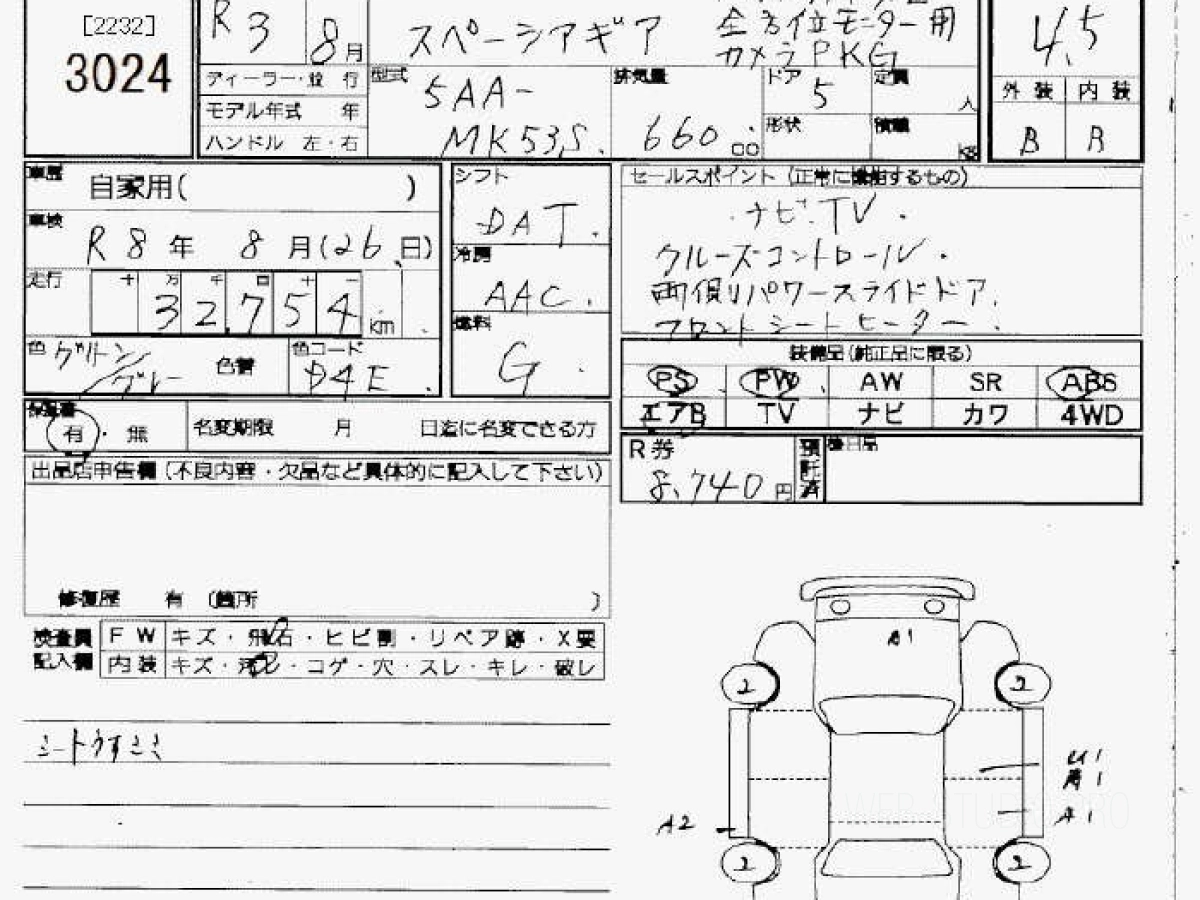 [2232]
3024
R3 8月
スペーシアギア
全方位モニター用
カメラPKG
4.5
ディーラー・並行
モデル年式 年
ハンドル 左・右
型式
5AA-
MK53S.
排気量
660
ドア
5
定員
人
形状
積載
kg
外装 内装
B B
車歴
自家用( )
車検
R8年 8月(26日)
走行
十 万 千 百 十 一
32,754 km
色
グリーン/グレー
色替
色コード
D4E.
シフト
DAT.
冷房
AAC.
燃料
G.
セールスポイント(正常に機能するもの)
・ナビ.TV.
クルーズコントロール.
両側リパワースライドドア.
フロントシートヒーター.
装備品(純正品に限る)
PS PW AW SR ABS
エアB TV ナビ カワ 4WD
保証書
有・無
名変期限 月 日迄に名変できる方
R券
8,740円
預託済
後日品
出品店申告欄(不良内容・欠品など具体的に記入して下さい)
修復歴 有 (箇所 )
検査員
記入欄
FW キズ・飛石・ヒビ割・リペア跡・X要
内装 キズ・汚れ・コゲ・穴・スレ・キレ・破レ
シートうすミミ
A1
2
2
U1
A1
A1
A2
2
2